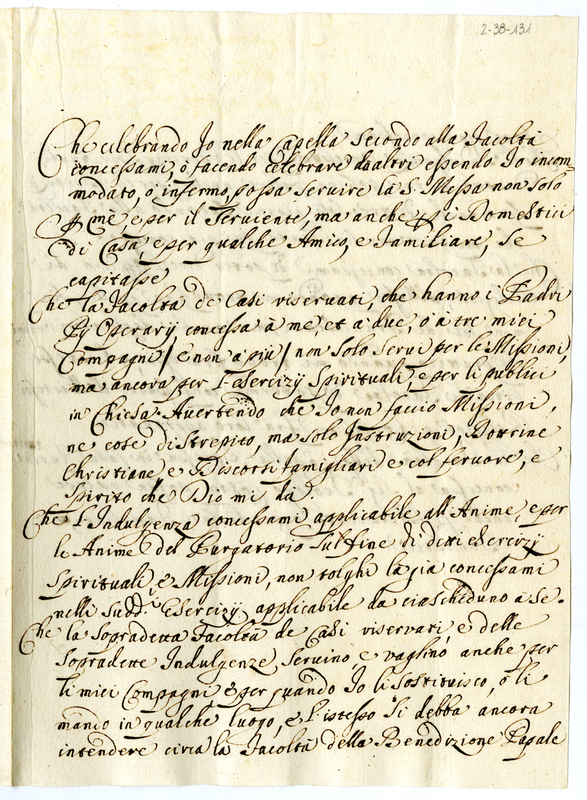 2-38-131
Che celebrando Io nella Capella secondo alla facoltà
concessami, ò facendo celebrare da altri essendo Io incom=
modato, ò infermo, possa servire la S. Messa non solo
p me, e per il Serviente, ma anche p i Domestici
di Casa, e per qualche Amico, e familiare, se
capitasse
Che la facoltà de Casi riservati, che hanno i Padri
Pij Operarij concessa à me, et a due, ò à tre miei
Compagni / e non a più / non solo servi per le Missioni,
ma ancora per l'esercizij Spirituali, e per li publici
in Chiesa. Avertendo che Io non faccio Missioni,
ne cose di strepito, ma solo Instruzioni, Dottrine
Christiane, e Discorsi famigliari e col fervore, e
spirito che Dio mi dà.
Che l'Indulgenza concessami applicabile all'Anime, e per
le Anime del Purgatorio sul fine di detti esercizij
Spirituali, e Missioni, non tolghi la già concessami
nelli sudd.i Esercizij applicabile da ciascheduno a se.
Che la sopradetta facoltà de Casi riservati, e delle
sopradette Indulgenze, servino, e vaglino anche per
li miei Compagni e per quando Io li sostituisco, ò li
mando in qualche luogo, e l'istesso si debba ancora
intendere circa la facoltà della Benedizione Papale